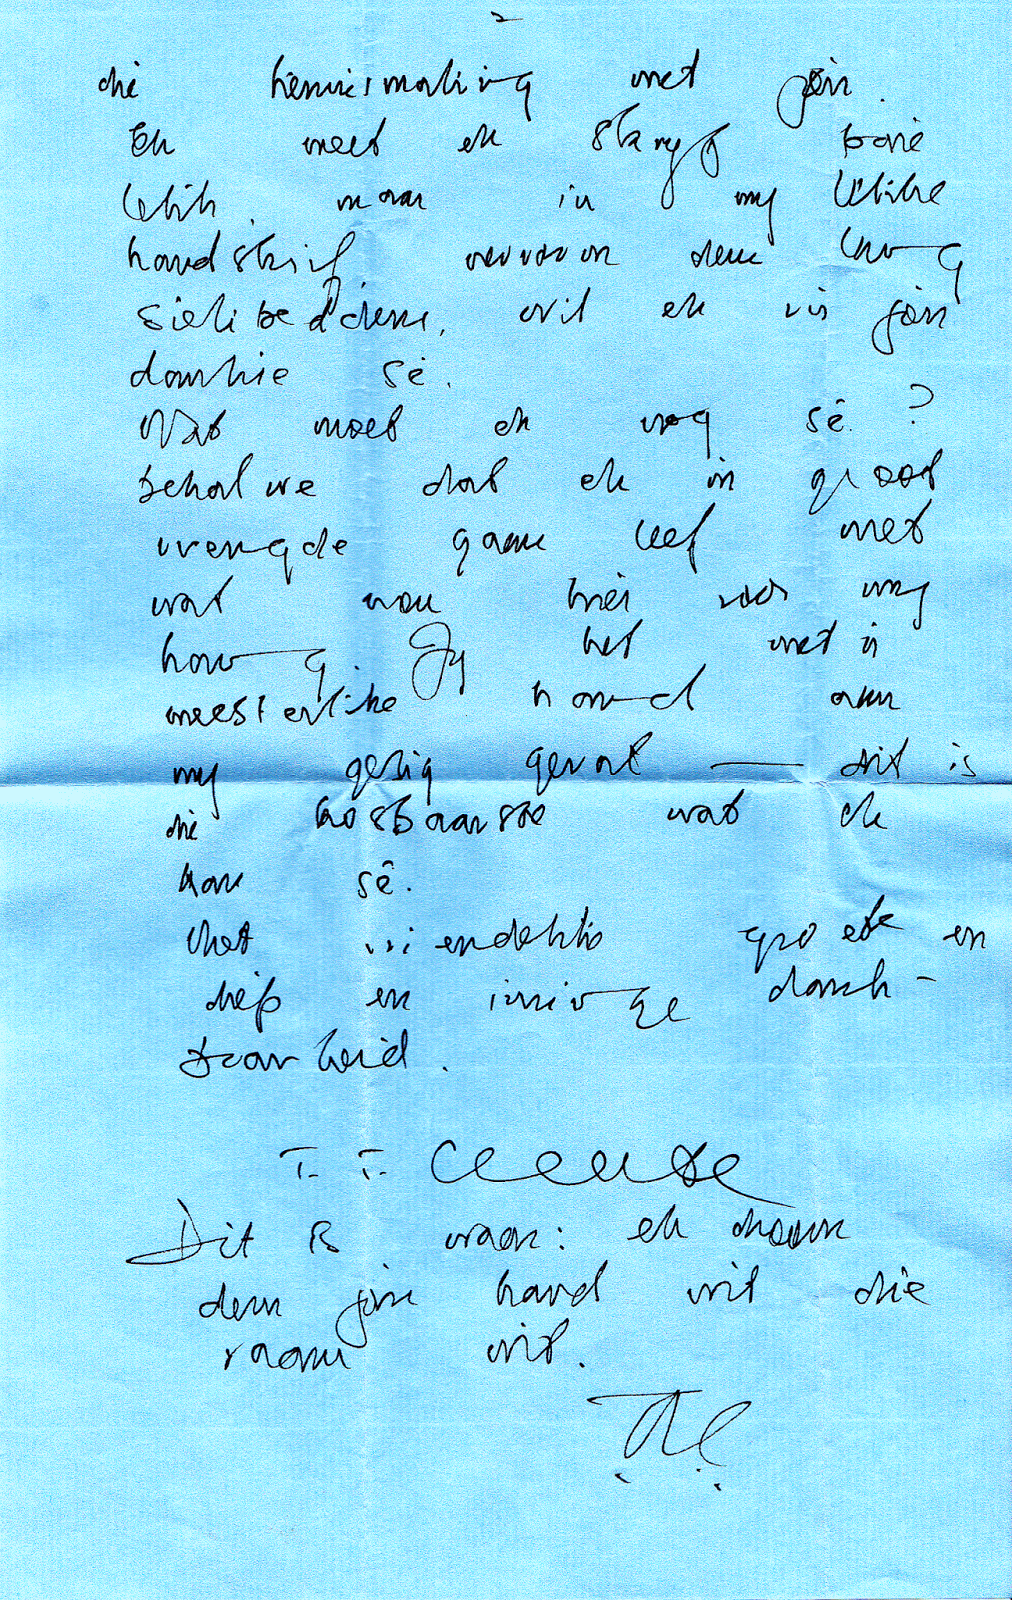 2
die kennismaking met jou.
Ek weet ek skryf baie
lelik, maar in my lelike
handskrif, waarvan
wil ek vir jou
dankie sê.
Wat moet ek nog sê?
behalwe dat ek in groot
vreugde gaan leef met
wat nou hier voor my
hang. Jy het met 'n
meesterlike hand aan
my gesig gevat — dit is
die kosbaarste wat ek
kan sê.
Met vriendelike groete en
diep en innige dank-
baarheid.
T. T. Cloete
Dit is waar: ek
jou hand uit die
raam uit.